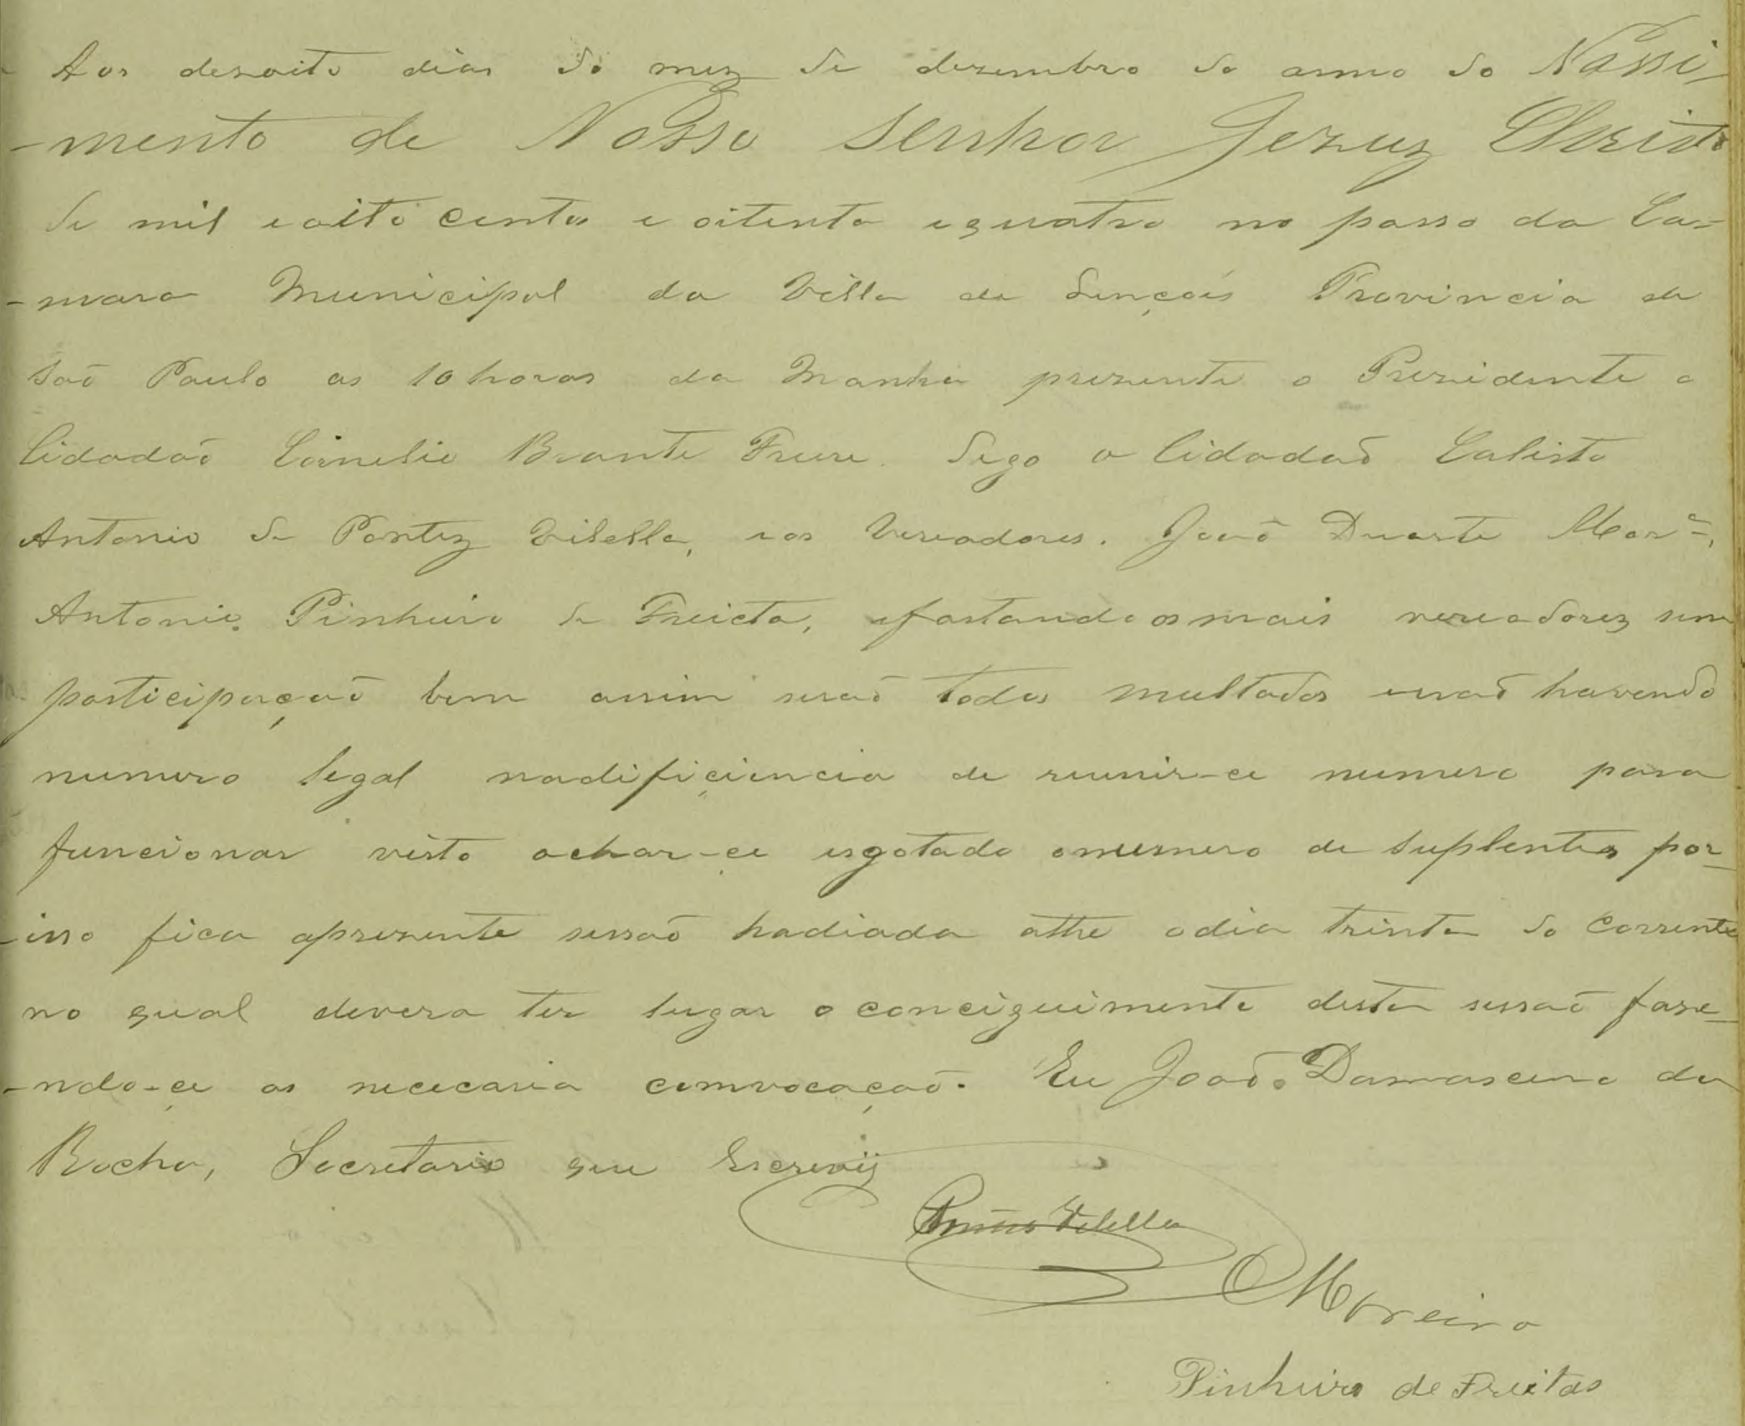 Aos desoito dias do mez de dezembro do anno do Nassi-
-mento de Nosso Senhor Jezuz Christo
de mil e oito centos e oitenta e quatro no passo da Ca-
-mara Municipal da Villa de Lençois Provincia de
São Paulo as 10 horas da Manha prezente o Prezidente o
Cidadaõ Cornelio Brante Freire. Digo o Cidadaõ Calisto
Antonio de Pontez Vilella, e os Vereadores. Joaõ Duarte Morª,
Antonio Pinheiro de Freicta, efastando os mais vereadorez sem
participaçaõ bem assim seraõ todos multados e naõ havendo
numero legal nadificiencia de reunir-ce numero para
funcionar visto achar-ce esgotado onumero de suplentes por-
-isso fica aprezente sessaõ hadiada athe odia trinta do Corrente
no qual devera ter lugar o conciguimento desta sessaõ faze-
-ndo-ce as nececaria comvocaçaõ. Eu Joaõ Damasceno da
Rocha, Secretario que Escrevij
Vilella
Moreira
Pinheiro de Freitas